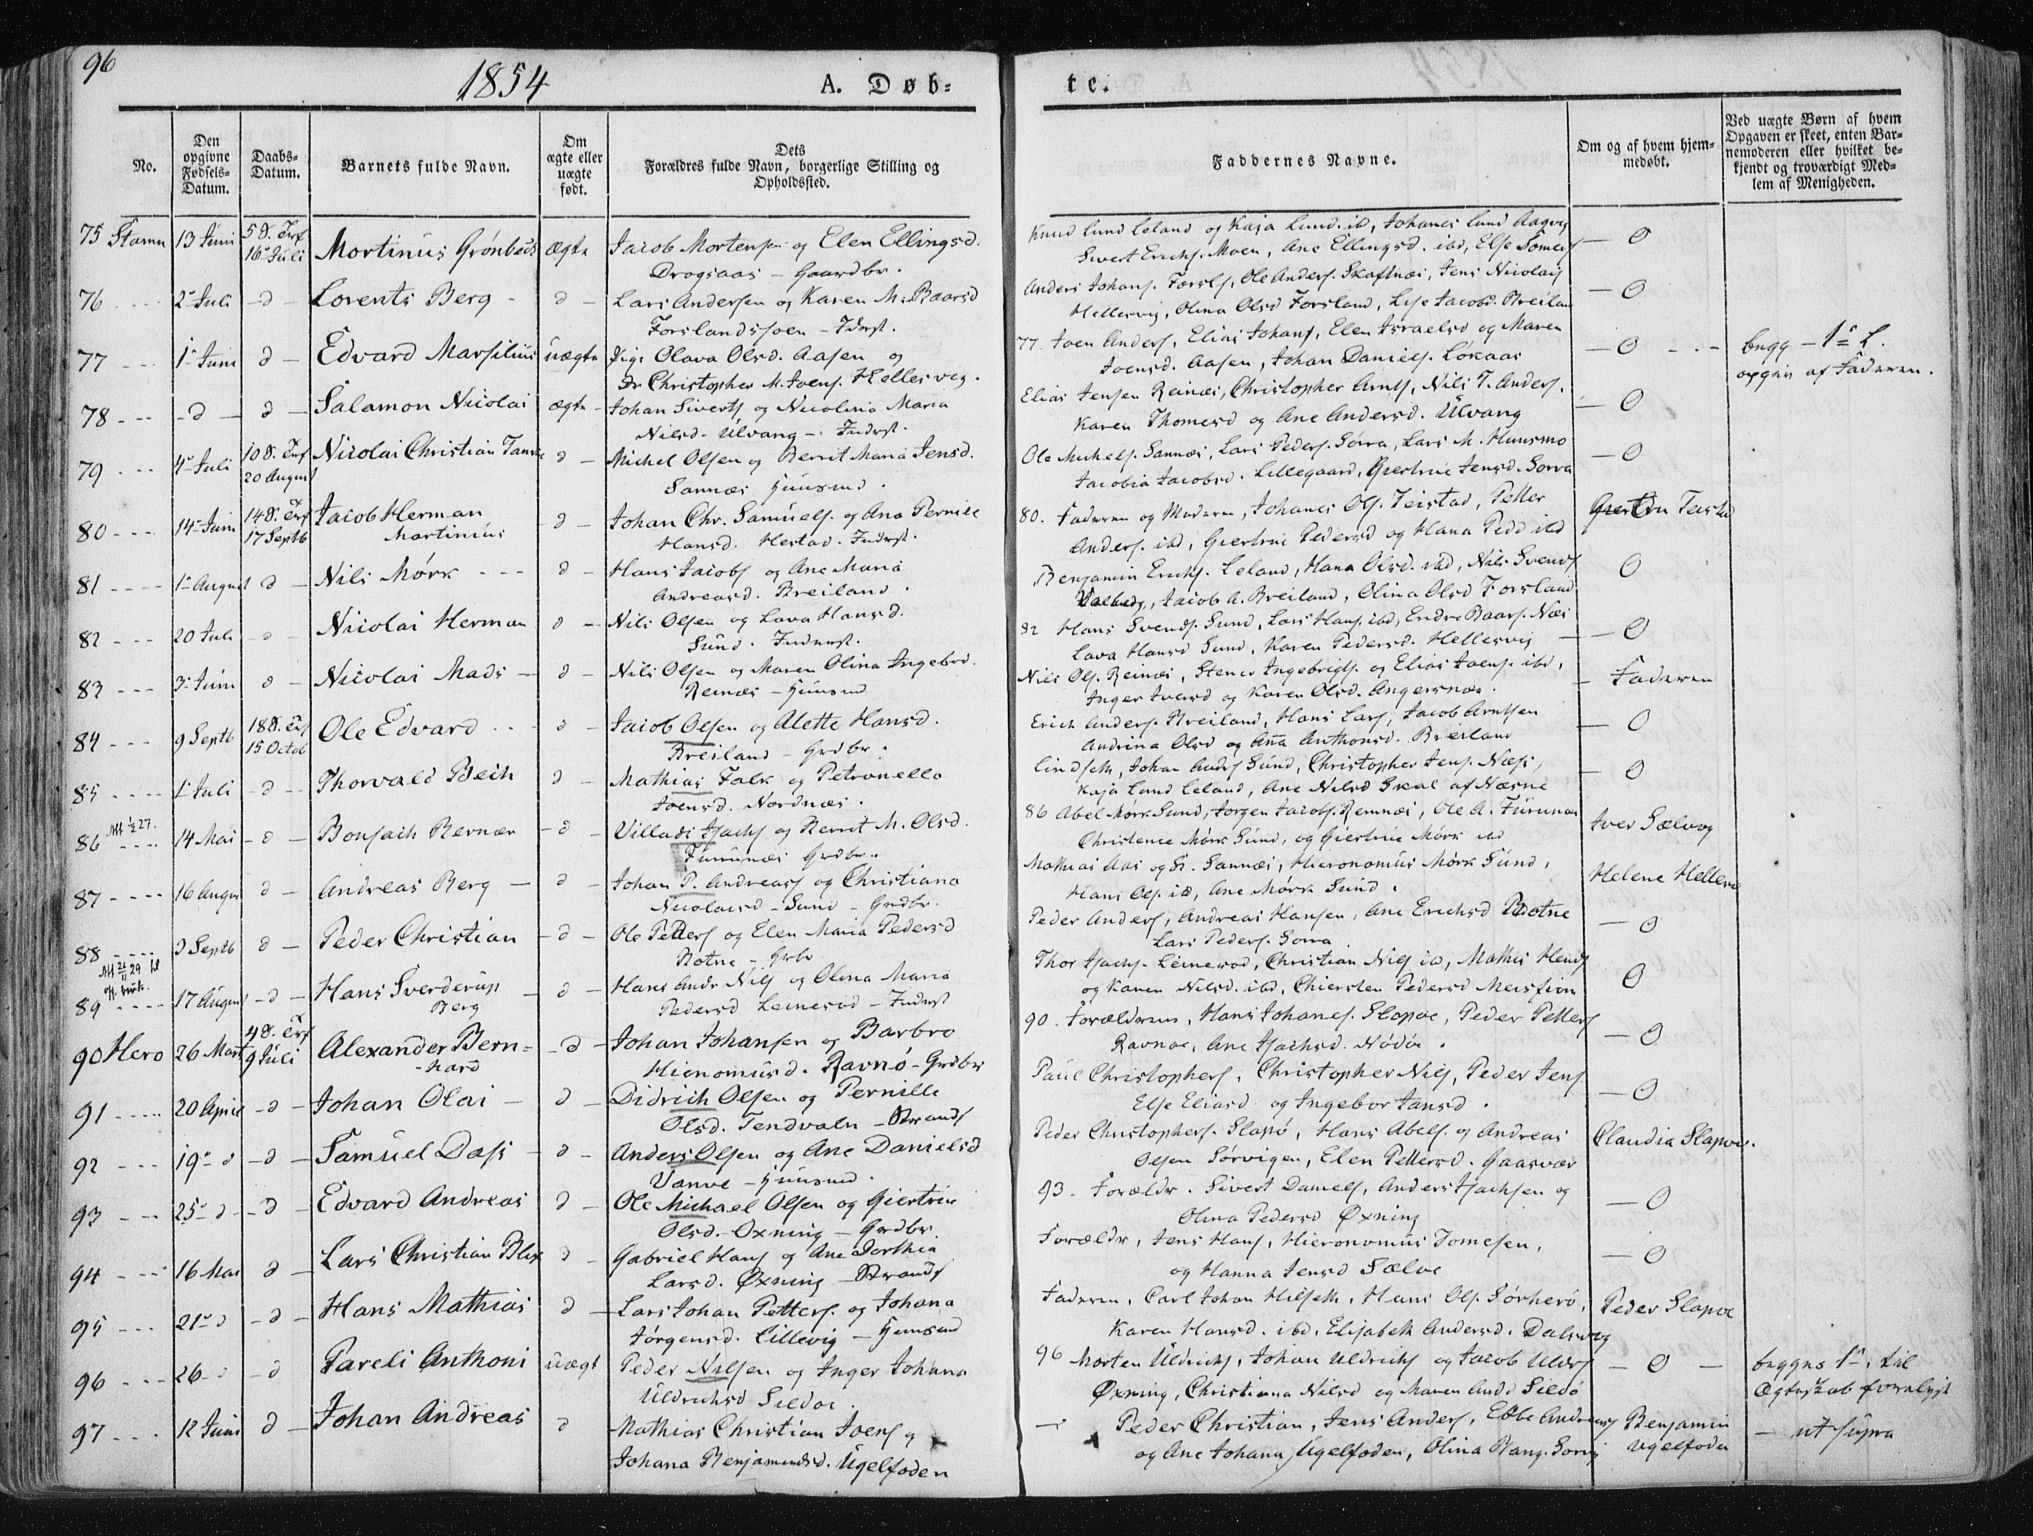 96
1854
A. Døb=
te.
No.
Den opgivne Fødsels-Datum.
Daabs-Datum.
Barnets fulde Navn.
Om ægte eller uægte født.
Dets Forældres fulde Navn, borgerlige Stilling og Opholdssted.
Faddernes Navne.
Om og af hvem hjemmedøbt.
Ved uægte Børn af hvem Opgaven er skeet, enten Barnemoderen eller hvilket bekjendt og troværdigt Medlem af Menigheden.
75 Stamn 13 Juni 5 S. Trf 16 Juli Mortinus Grønbech ægte Jacob Mortensen og Elen Ellingsd.
Dragsaas - Gaardbr.
Knud Lund Leland og Kaja Lund ibd, Johanes Lund
Sivert Erichs. Moen, Ane Ellingsd. ibd, Else
76 2 Juli - d - Lorents Berg - d - Lars Andersen og Karen M. Baarsd
Forslandssoen - Inderst.
Anders Johans. Forsl, Ole Anders. Skaftnæs, Jens Nicolais
Hellesvig, Olina Olsd Forsland, Lise Jacobsd. Breiland - 0
77 1 Juni d - Edvard Marsilius uægte Pige Olava Olsd. Aasen og
Dr Christopher M. Joens. Hellesvig.
77. Joen Anders, Elias Johans, Elen Israelsd og Maren
Joensd. Aasen, Johan Daniels. Løkaas - 0 - begg - 1 L.
opgiv af Faderen.
78 - d - d - Salamon Nicolai ægte - Johan Siverts og Nicolina Maria
Nilsd. Ulvang - Inderst.
Elias Jensen Reinæs, Christopher Arnts, Nils T. Anders.
Karen Thomesd og Ane Andersd. Ulvang - 0
79 4 Juli 10 S. Trf 20 August Nicolai Christian d - Michel Olsen og Berrit Maria Jensd.
Sannæs Huusmd.
Ole Michels. Sannæs, Lars Peders. Sørra, Lars M. Husmo
Jacobia Jacobsd. Lillegaard, Giertrue Jensd. Sørra - 0
80 14 Juni 14 S. Trf 17 Septb Jacob Herman
Martinius - d - Johan Chr. Samuels. og Ana Pernile
Hansd. Hestad. Inderst.
80. Faderen og Moderen, Johanes Ols. Teistad, Petter
Anders. ibd, Giertrue Pedersd og Hana Pedd ibd
81 1 August d - Nils Mørk - d - Hans Jacobs og Ane Maria
Andreasd. Breiland.
Benjamin Erichs. Leland, Hana Olsd. ibd, Nils Svends
Jacob A. Breiland, Olina Olsd Forsland 0
82 20 Juli d Nicolai Herman d - Nils Olsen og Lava Hansd.
Sund. Inderst.
82 Hans Svends. Sund, Lars Hans. ibd, Endre Baars. Næs
Lava Hansd Sund, Karen Pedersd. Hellesvig - 0
83 3 Juni d - Nicolai Mads - d - Nils Olsen og Maren Olina Ingebrd.
Reinæs - Huusmd
Nils Ols. Reinæs, Stener Ingebrigts. og Elias Joens. ibd,
Inger Iversd og Karen Olsd. Angersnæs. - Faderen
84 9 Septb 18 S. Trf 15 Octob Ole Edvard d - Jacob Olsen og Alette Hansd.
Breiland - Grdbr.
Erich Anders. Breiland, Hans Lars, Jacob Arntsen
Andrina Olsd og Ana Anthonsd. Breiland - 0
85 1 Juli - d - Thorvald Bech d - Mathias Falk og Petronella
Joensd. Nordnæs.
Lindseth, Johan Anders Sund, Christopher Jens. Næss,
Kaja Lund Leland, Ane Nilsd Skal af Næsne - 0
Att 1/2 27.
86 14 Mai - d - Bonsach Bernær - d - Villads Isachs og Berrit M. Olsd.
Furunæs Grdbr.
86 Abel Mørk Sund, Jørgen Jacobs. Remnæs, Ole A. Furunæs
Christence Mørk Sund, og Giertrue Mørk ibd Iver Sælvog
87 16 August d - Andreas Berg - d - Johan P. Andreass og Christiana
Nicolaisd - Sund - Grdbr.
Mathias Aas og Fr. Sannæs, Hieronomus Mørk Sund,
Hans Ols. ibd, Ane Mørk Sund. Helene Hellesv
88 3 Septb d - Peder Christian - d - Ole Petters og Elen Maria Pedersd
Botne - Grbr
Peder Anders, Andreas Hansen, Ane Erichsd Botne
Lars Peders. Sørra - 0
89 17 August - d - Hans Sverderup
Berg d - Hans Andr Nils og Olina Maria
Pedersd Leinesod - Inderst
Thor Isachs. Leinesod, Christian Nils ibd, Mathis Hends
og Karen Nilsd. ibd, Chiersten Pedersd Meisfion 0
90 Hero 26 Mart 4 S. Trf 9 Juli Alexander Bern=
hard - d - Johan Johansen og Barbro
Hieronomusd. Ravnø - Grdbr
90. Forælderne, Hans Johanes. Slapøe, Peder Petters
Ravnøe, Ane Isachsd. Nødøe. - 0
91 20 April - d - Johan Olai - d - Didrich Olsen og Pernille
Olsd. Tendvaln - Strands
Paul Christophers, Christopher Nils, Peder Jens.
Else Eliasd og Ingebor Jansd. - 0
92 19 d - d - Samuel Dass - d - Anders Olsen og Ane Danielsd
Vanve - Huusmd.
Peder Christophers. Slapø, Hans Abels. og Andreas
Olsen Sørvigen, Elen Pettersd. Gaasvær Claudia Slapøe.
93 25 d - d - Edvard Andreas d - Ole Michael Olsen og Giertrue
Olsd. - Øxning - Grdbr.
93. Forældr. Sivert Daniels, Anders Isachsen og
Olina Pedersd Øxning - 0
94 16 Mai d - Lars Christian Blix d - Gabriel Hans og Ane Dorthea
Larsd. Øxning - Strands
Forældr, Jens Hans, Hieronomus Tomesen,
og Hanna Jensd Sælve - 0
95 21 d - d - Hans Mathias d - Lars Johan Petters. og Johana
Jørgensd. Lillevig - Huusmd
Faderen, Carl Johan Hilseth, Hans Ols. Sørherø,
Karen Hansd. ibd. Elisabeth Andersd. Dalsvog Peder Slapøe
96 26 d - d Pareli Anthoni uægt Peder Nilsen og Inger Johana
Uldrichsd Sildøe.
96 Morten Uldrichs, Johan Uldrichs og Jacob Uldrs
Øxning, Christiana Nilsd og Maren Andd Sildø - 0 - begges 1. til
Ægteskab forælsst
97 12 Juni d - Johan Andreas d Mathias Christian Joens og
Johana Benjaminsd. Ugelfoden
Peder Christian, Jens Anders, Ebbe Andreas
og Ane Johana Ugelfoden, Olina Bang. Benjamin
Ugelfoden - ut supra